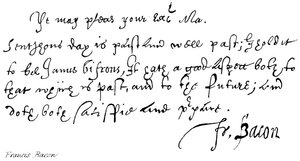 It may please your exc^t Ma.
Senygeons day is past and well past; I hold it
to be Janus bifrons; It hath a good aspect both to
that which is past, and to the future; and
doth both satisfie and prepare.
Fr. Bacon
Francis Bacon